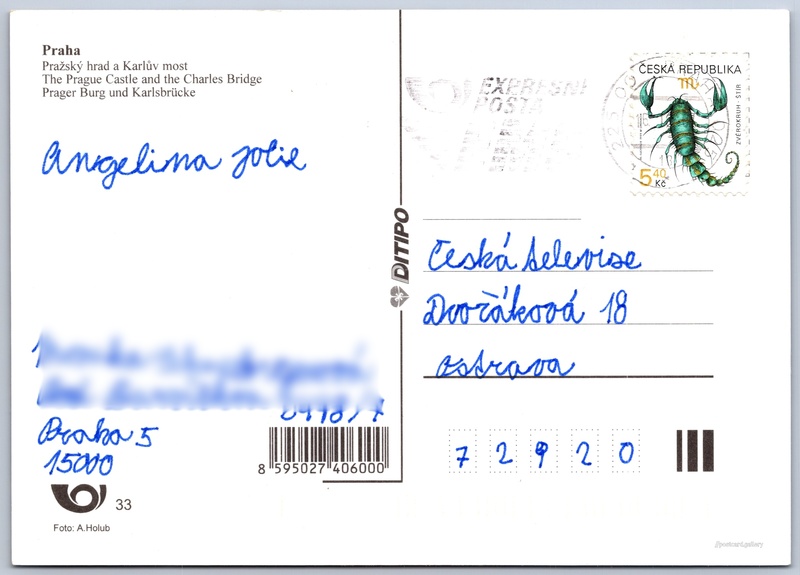 Praha
Pražský hrad a Karlův most
The Prague Castle and the Charles Bridge
Prager Burg und Karlsbrücke
Angelina Jolie
Praha 5
15000
8 595027 406000
33
Foto: A.Holub
DITIPO
EXPRESNÍ
POSTA
ČESKÁ REPUBLIKA
m
ZVĚROKRUH - ŠTÍR
5.40 Kč
Česká televise
Dvořáková 18
Ostrava
7 2 9 2 0
//postcard.gallery